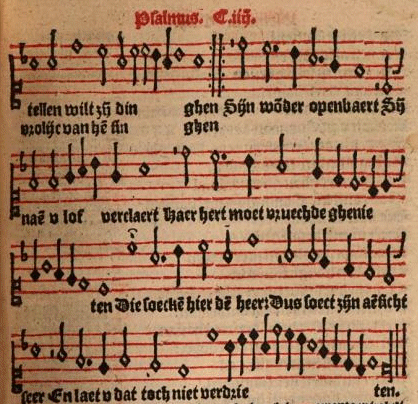 Psalmus. C.iiij.
tellen wilt zij din ghen Sijn wōder openbaert Sij
vrolije van hē sin ghen
naē v lof verclaert Haer hert moet vruechde ghenie
ten Die soeckē hier dē heer: Dus soect zijn aēsicht
seer En laet v dat toch niet verdrie ten.